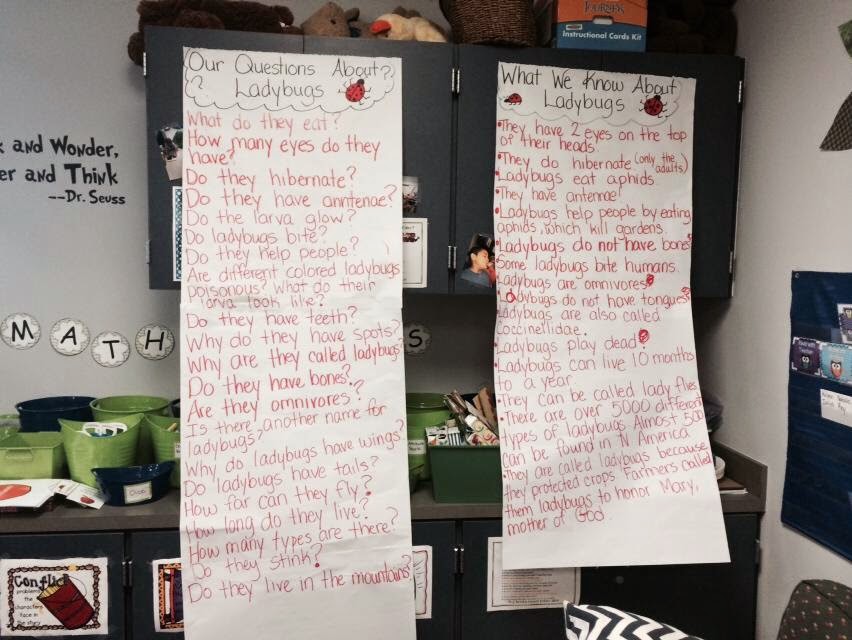 k and Wonder,
er and Think
--Dr. Seuss
MATH
S
Our Questions About
? Ladybugs ?
What do they eat?
How many eyes do they
have?
Do they hibernate?
Do they have anntenae?
Do the larva glow?
Do ladybugs bite?
Do they help people?
Are different colored ladybugs
poisonous? What do their
larva look like?
Do they have teeth?
Why do they have spots?
Why are they called ladybugs?
Do they have bones?
Are they omnivores?
Is there another name for
ladybugs?
Why do ladybugs have wings?
Do ladybugs have tails?
How far can they fly?
How long do they live?
How many types are there?
Do they stink?
Do they live in the mountains?
What We Know About
Ladybugs
•They have 2 eyes on the top
of their heads.
•They do hibernate (only the
adults)
•Ladybugs eat aphids.
•They have antennae!
•Ladybugs help people by eating
aphids, which kill gardens.
•Ladybugs do not have bones
•Some ladybugs bite humans.
•Ladybugs are omnivores
•Ladybugs do not have tongues
•Ladybugs are also called
Coccinellidae.
•Ladybugs play dead
•Ladybugs can live 10 months
to a year.
•They can be called lady flies
•There are over 5000 different
types of ladybugs. Almost 500
can be found in N America.
•They are called ladybugs because
they protected crops. Farmers called
them ladybugs to honor Mary,
mother of God.
Instructional Cards Kit
Conflict
problems
the
characters
face in
the story